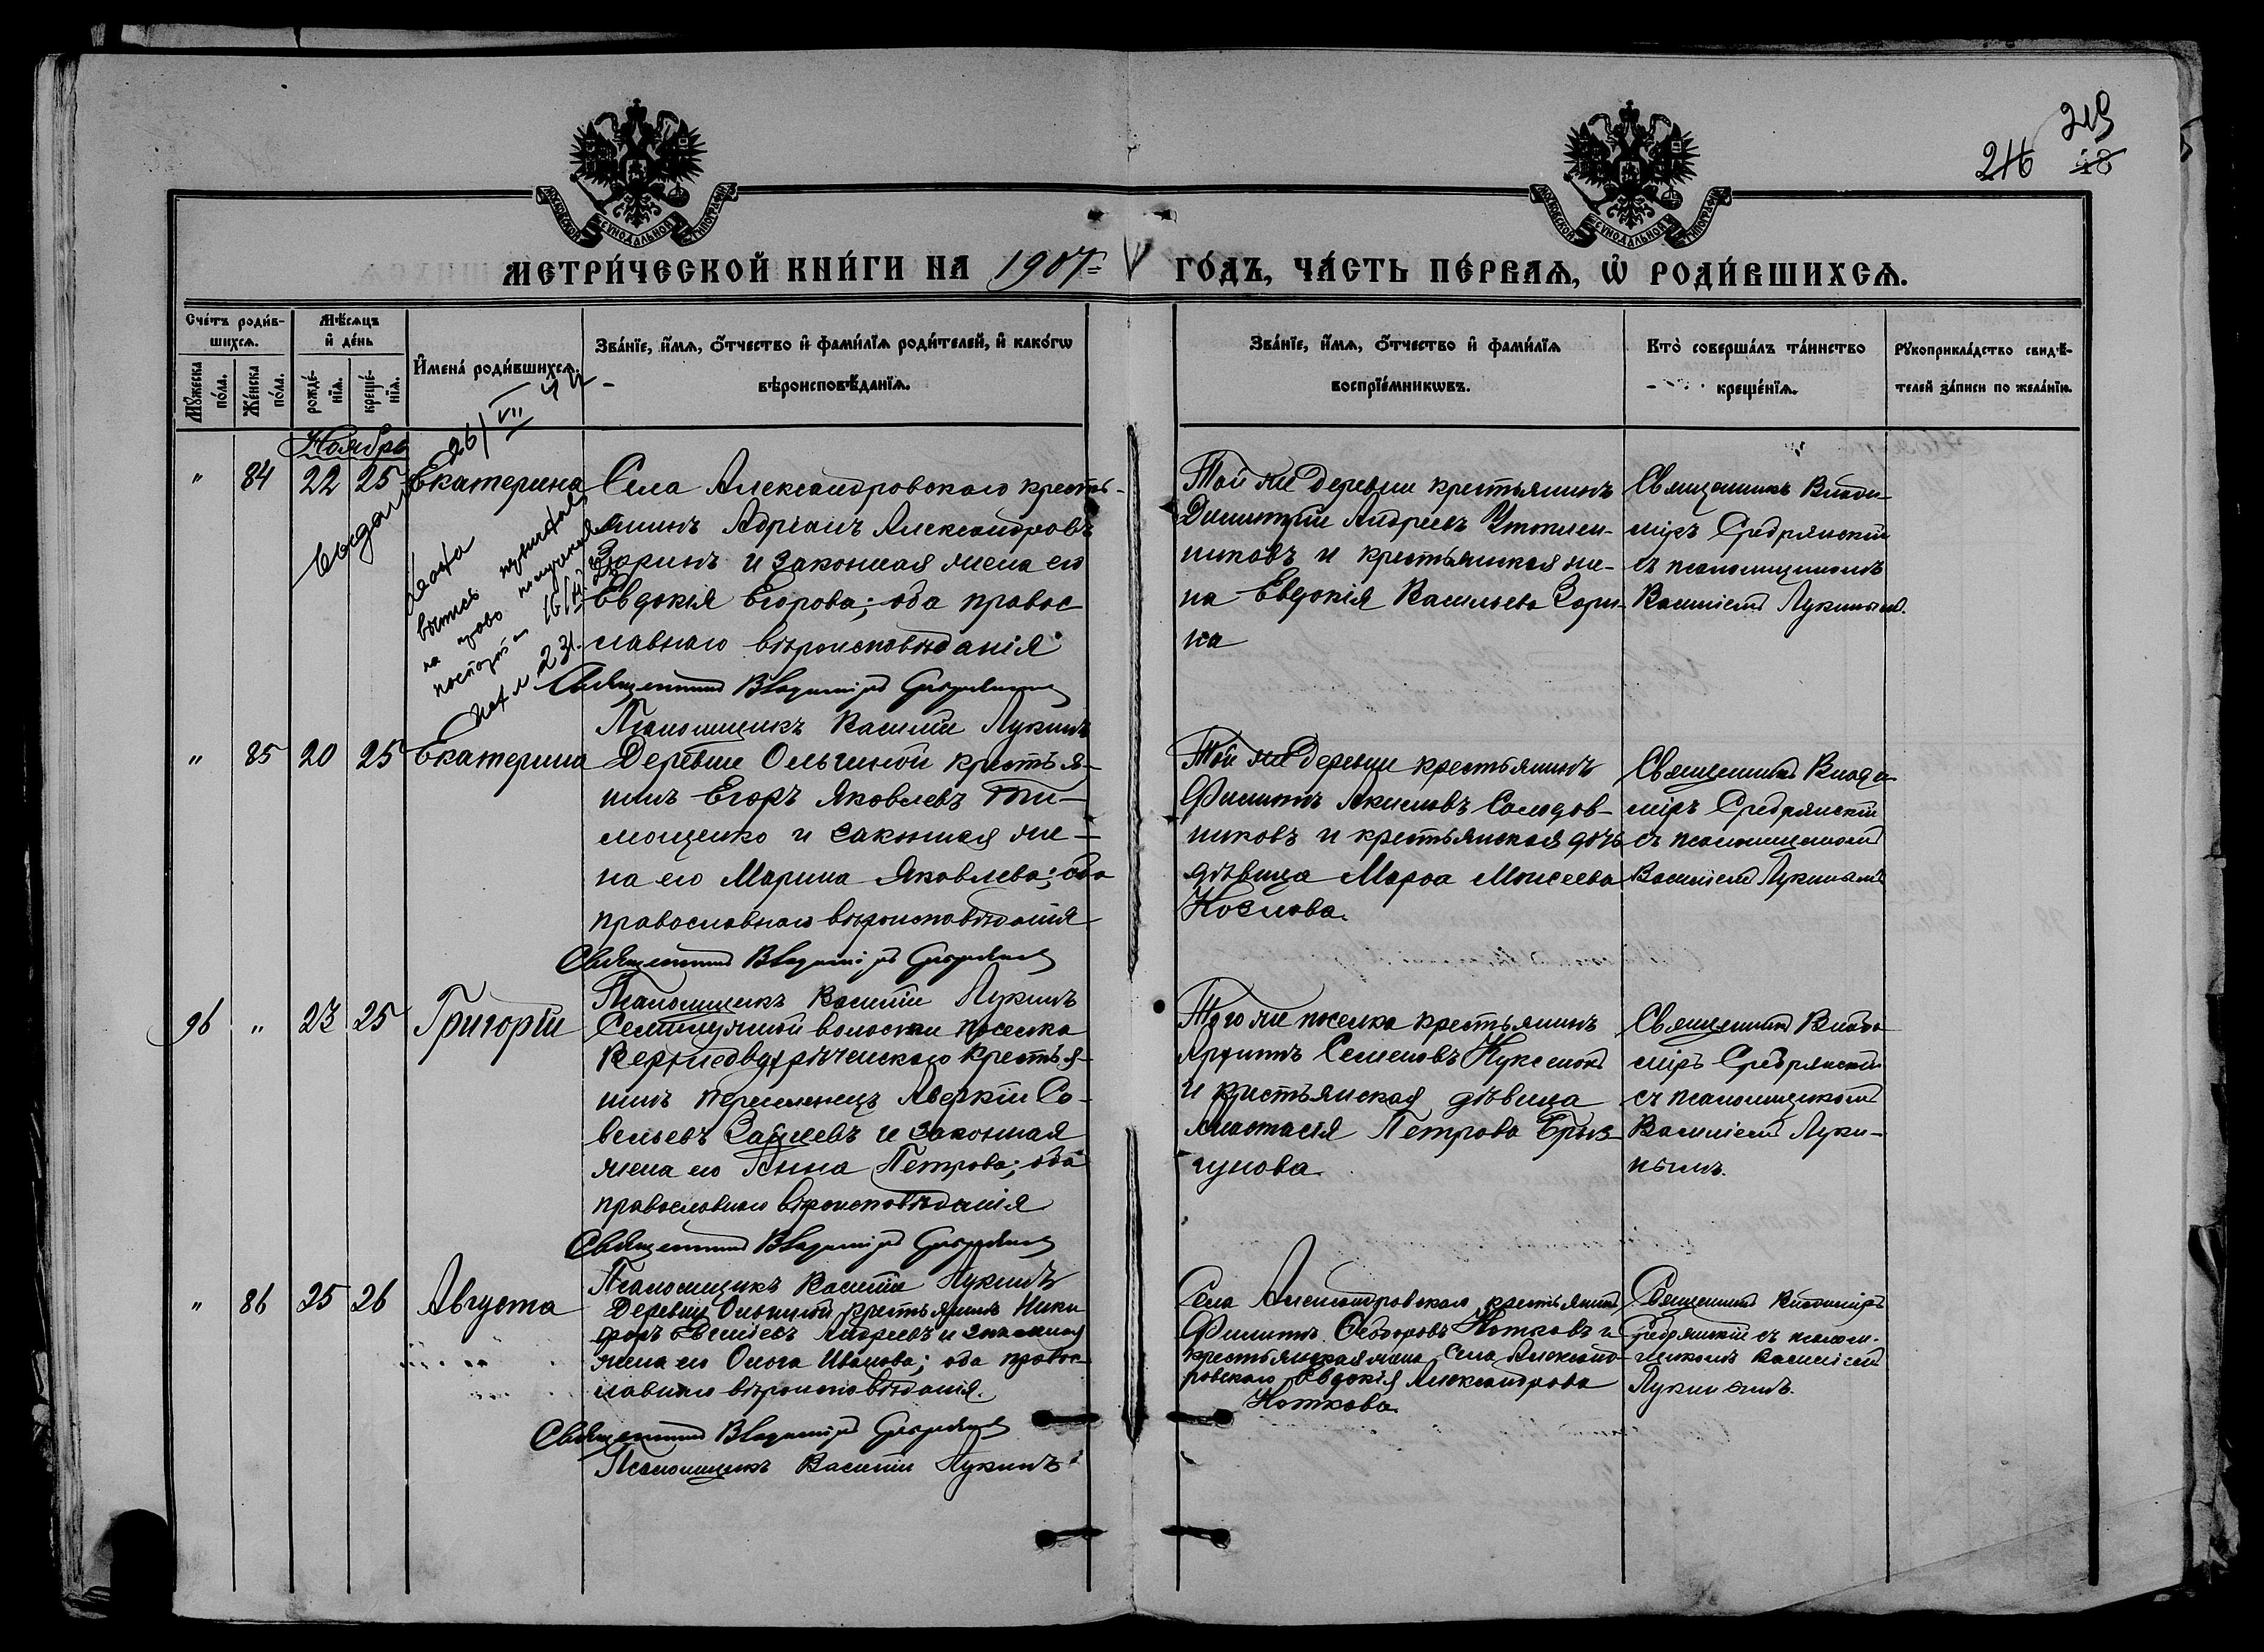 219
216 48
МОСКОВСКОЙ СѴНОДАЛЬНОЙ ТИПОГРАФІИ
МОСКОВСКОЙ СѴНОДАЛЬНОЙ ТИПОГРАФІИ
МЕТРИ́ЧЕСКОЙ КНИ́ГИ НА 1907 ГО́ДЪ, ЧА́СТЬ ПЕ́РВАѦ, Ѡ҆ РОДИ́ВШИХСѦ.
Сче́тъ роди́в-
шихсѧ.
Мѣ́сѧцъ
и҆ де́нь
Мꙋ́жеска
по́ла.
Же́нска
по́ла.
рожде́-
нїѧ.
креще́-
нїѧ.
И҆мена̀ роди́вшихсѧ.
Зва́нїе, и҆́мѧ, ѻ҆́тчество и҆ фами́лїѧ роди́телей, и҆ како́гѡ
вѣроисповѣ́данїѧ.
Зва́нїе, и҆́мѧ, ѻ҆́тчество и҆ фами́лїѧ
воспрїе́мникѡвъ.
Кто̀ соверша́лъ та́инство
креще́нїѧ.
Рꙋкоприкла́дство свидѣ́-
телей за́писи по жела́нїю.
Ноябрь
" 84 22 25 Екатерина
26/VII
выдана
выпись
на право
16/IV
231
Села Александровскаго кресть-
янинъ Адріанъ Александровъ
Заринъ и законная жена его
Евдокія Егорова; оба правос
лавнаго вѣроисповѣданія
Священникъ Владиміръ Сребрянскій
Псаломщикъ Василій Лукинъ
Той же деревни крестьянинъ
Димитрій Андреевъ
никовъ и крестьянская же-
на Евдокія Васильева Зари-
на
Священникъ Влади-
міръ Сребрянскій
съ псаломщикомъ
Василіемъ Лукинымъ.
" 85 20 25 Екатерина
Деревни Ольгиной крестья-
нинъ Егоръ Яковлевъ Ти-
мощенко и законная же-
на его Марина Яковлева; оба
православнаго вѣроисповѣданія
Священникъ Владиміръ Сребрянскій
Псаломщикъ Василій Лукинъ
Той же деревни крестьянинъ
Филиппъ Акимовъ Солодов-
никовъ и крестьянская дочь
дѣвица Марѳа Моисеева
Козлова.
Священникъ Влади-
міръ Сребрянскій
съ псаломщикомъ
Василіемъ Лукинымъ
96 " 23 25 Григорій
волости поселка
крестья-
нинъ переселенецъ Аверкій Са-
вельевъ Зайцевъ и законная
жена его Анна Петрова; оба
православнаго вѣроисповѣданія
Священникъ Владиміръ Сребрянскій
Псаломщикъ Василій Лукинъ
Того же поселка крестьянинъ
Архипъ Семеновъ
и крестьянская дѣвица
Анастасія Петрова Брыз-
гунова.
Священникъ Влади
міръ Сребрянскій
съ псаломщикомъ
Василіемъ Луки-
нымъ.
" 86 25 26 Августа
Деревни Ольгиной крестьянинъ Ники
форъ Андреевъ и законная
жена его Ольга Иванова; оба правос-
лавнаго вѣроисповѣданія.
Священникъ Владиміръ Сребрянскій
Псаломщикъ Василій Лукинъ
Села Александровскаго крестьянинъ
Филиппъ Ѳеодоровъ Котковъ и
крестьянская жена села Александ-
ровскаго Евдокія Александрова
Коткова.
Священникъ Владиміръ
Сребрянскій съ псалом-
щикомъ Василіемъ
Лукинымъ.